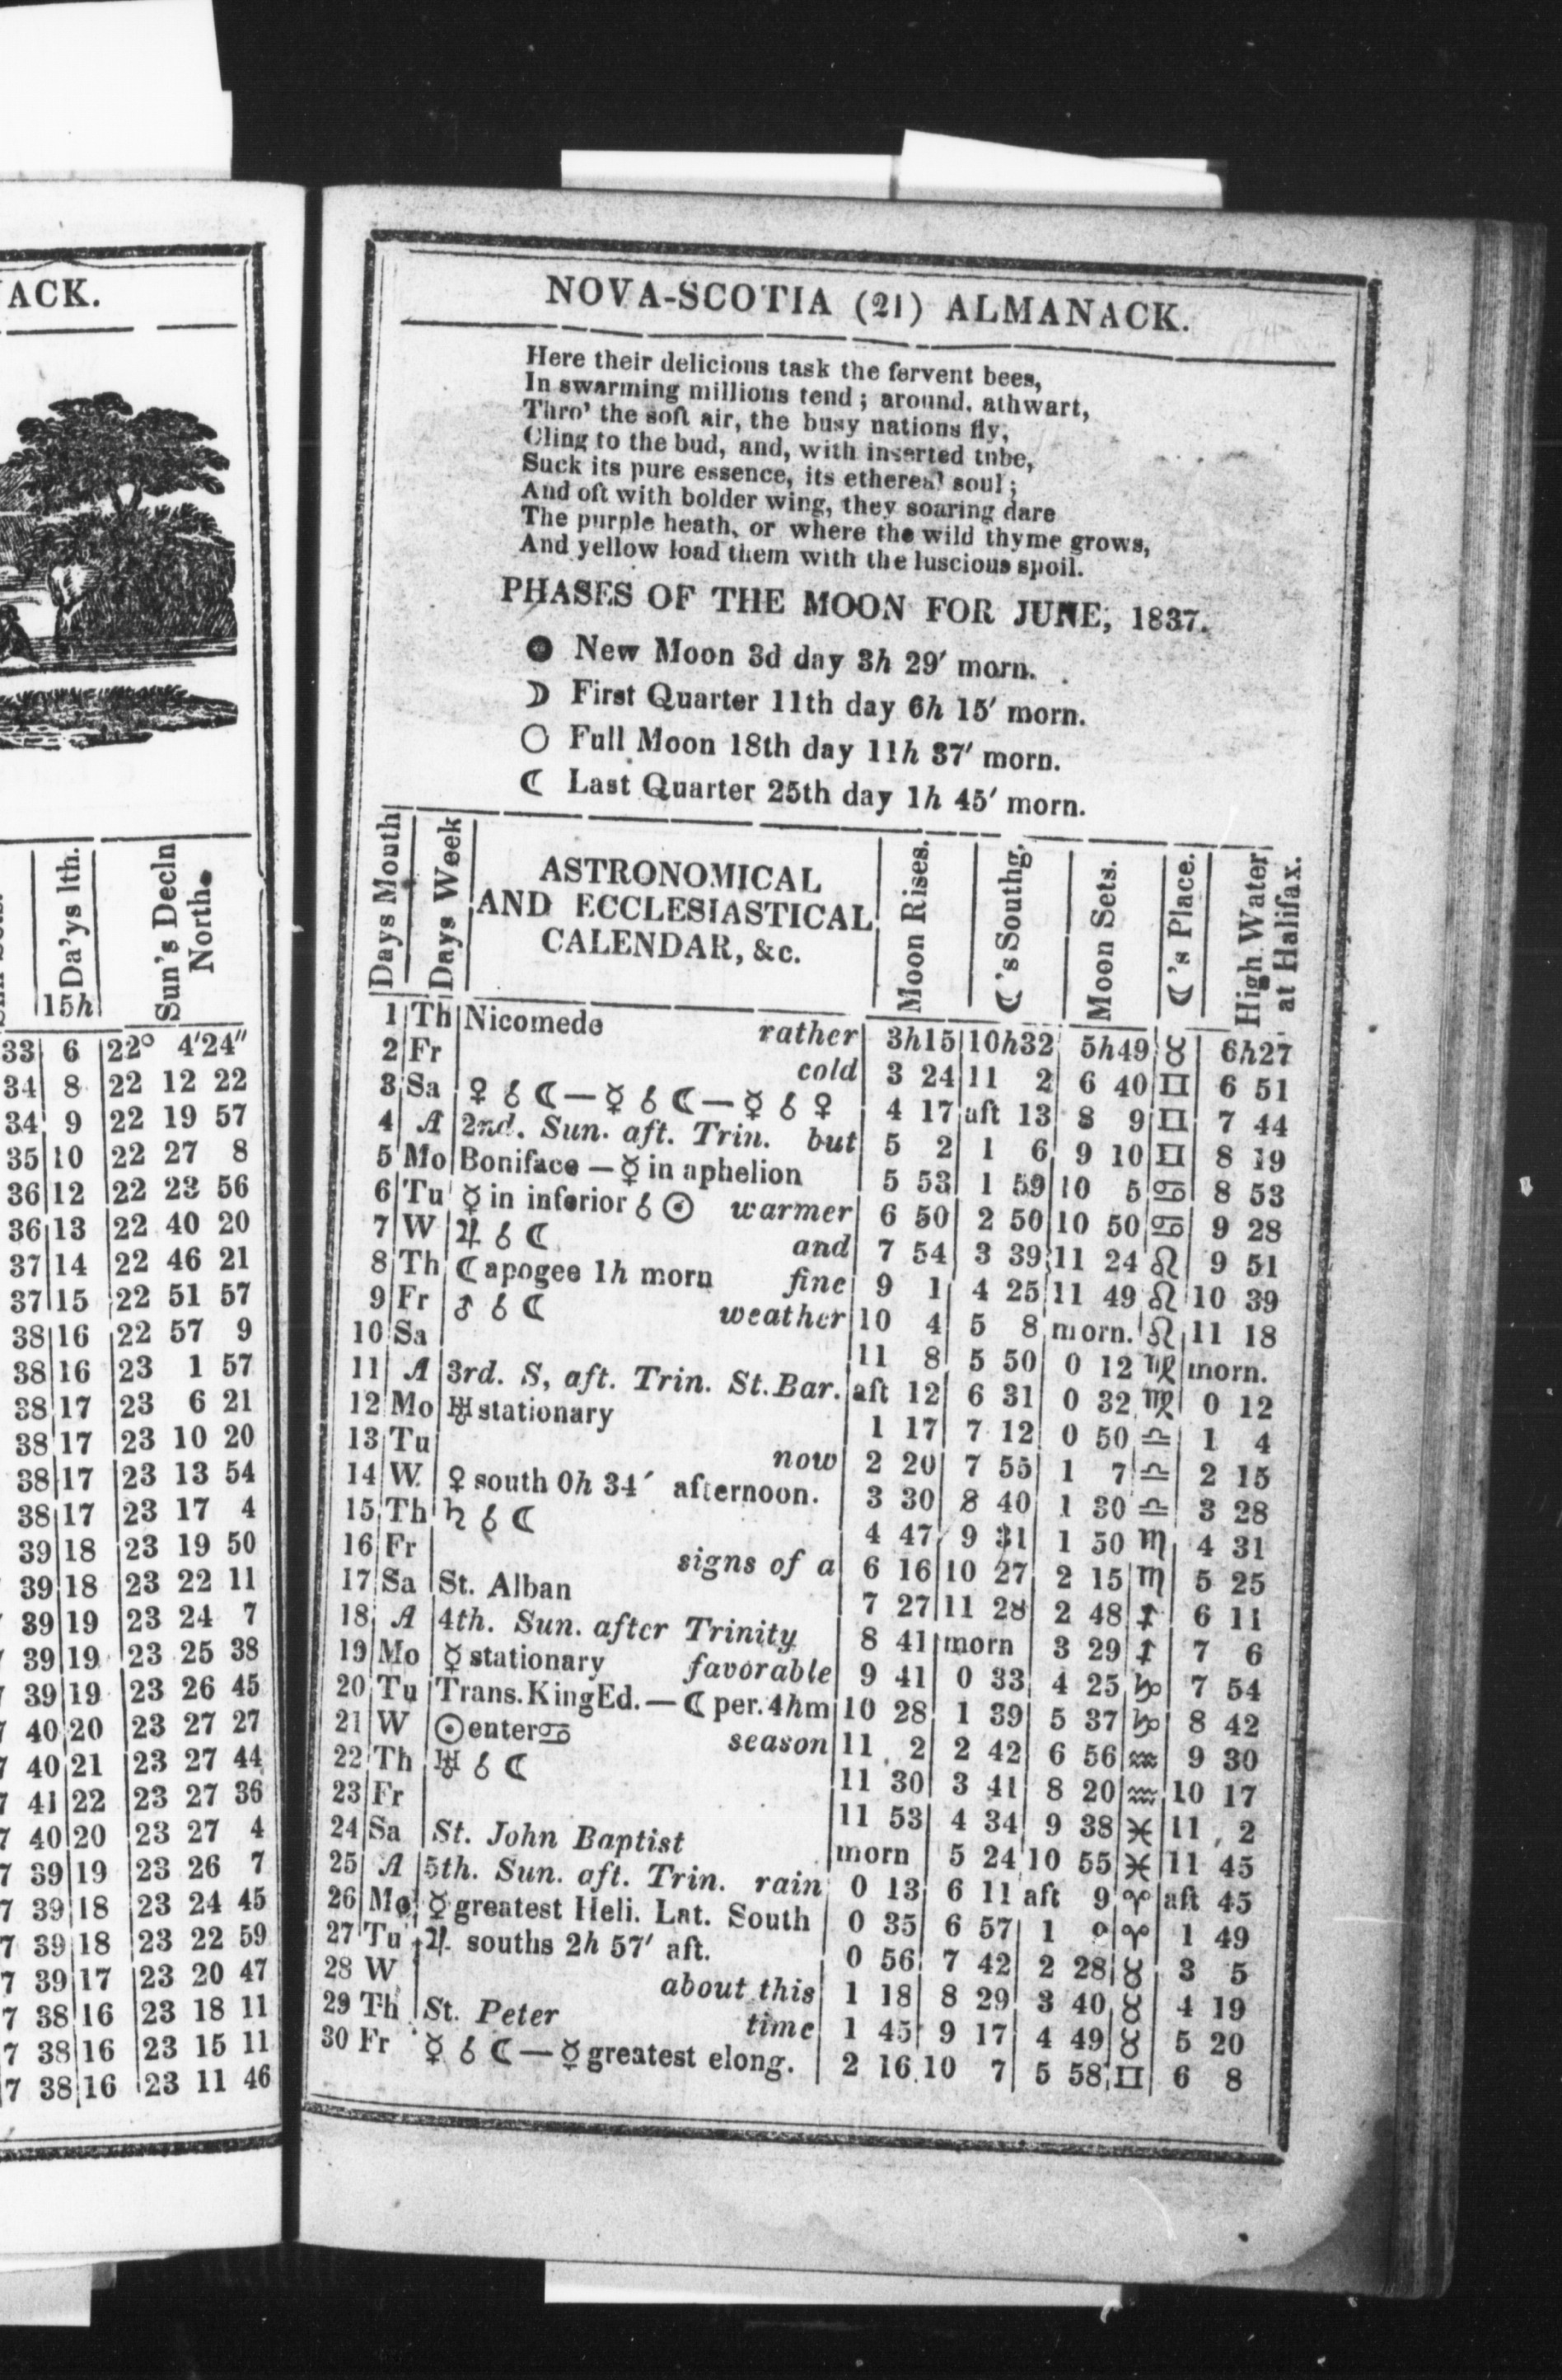 ACK.
Da'ys lth.
Sun's Decln
North.
15h
33 6 22° 4'24"
34 8 22 12 22
34 9 22 19 57
35 10 22 27 8
36 12 22 23 56
36 13 22 40 20
37 14 22 46 21
37 15 22 51 57
38 16 22 57 9
38 16 23 1 57
38 17 23 6 21
38 17 23 10 20
38 17 23 13 54
38 17 23 17 4
39 18 23 19 50
39 18 23 22 11
39 19 23 24 7
39 19 23 25 38
39 19 23 26 45
40 20 23 27 27
7 40 21 23 27 44
7 41 22 23 27 36
7 40 20 23 27 4
7 39 19 23 26 7
7 39 18 23 24 45
7 39 18 23 22 59
7 39 17 23 20 47
7 38 16 23 18 11
7 38 16 23 15 11
7 38 16 23 11 46
NOVA-SCOTIA (21) ALMANACK.
Here their delicious task the fervent bees,
In swarming millions tend; around, athwart,
Thro' the soft air, the busy nations fly,
Cling to the bud, and, with inserted tube,
Suck its pure essence, its ethereal soul;
And oft with bolder wing, they soaring dare
The purple heath, or where the wild thyme grows,
And yellow load them with the luscious spoil.
PHASES OF THE MOON FOR JUNE, 1837.
● New Moon 3d day 3h 29′ morn.
☽ First Quarter 11th day 6h 15′ morn.
○ Full Moon 18th day 11h 37′ morn.
☾ Last Quarter 25th day 1h 45′ morn.
Days Mouth
Days Week
ASTRONOMICAL
AND ECCLESIASTICAL
CALENDAR, &c.
Moon Rises.
☾'s Southg.
Moon Sets.
☾'s Place.
High Water
at Halifax.
1 Th Nicomede rather 3h15 10h32 5h49 ♉ 6h27
2 Fr cold 3 24 11 2 6 40 ♊ 6 51
3 Sa ♀ ☌ ☾—☿ ☌ ☾—☿ ☌ ♀ 4 17 aft 13 8 9 ♊ 7 44
4 A 2nd. Sun. aft. Trin. but 5 2 1 6 9 10 ♊ 8 19
5 Mo Boniface—☿ in aphelion 5 53 1 59 10 5 ♋ 8 53
6 Tu ☿ in inferior ☌ ☉ warmer 6 50 2 50 10 50 ♋ 9 28
7 W ♃ ☌ ☾ and 7 54 3 39 11 24 ♌ 9 51
8 Th ☾ apogee 1h morn fine 9 1 4 25 11 49 ♌ 10 39
9 Fr ♂ ☌ ☾ weather 10 4 5 8 morn. ♌ 11 18
10 Sa 11 8 5 50 0 12 ♍ morn.
11 A 3rd. S, aft. Trin. St.Bar. aft 12 6 31 0 32 ♍ 0 12
12 Mo ♅ stationary 1 17 7 12 0 50 ♎ 1 4
13 Tu now 2 20 7 55 1 7 ♎ 2 15
14 W. ♀ south 0h 34′ afternoon. 3 30 8 40 1 30 ♎ 3 28
15 Th ♄ ☌ ☾ 4 47 9 31 1 50 ♏ 4 31
16 Fr signs of a 6 16 10 27 2 15 ♏ 5 25
17 Sa St. Alban 7 27 11 28 2 48 ♐ 6 11
18 A 4th. Sun. after Trinity 8 41 morn 3 29 ♐ 7 6
19 Mo ☿ stationary favorable 9 41 0 33 4 25 ♑ 7 54
20 Tu Trans. King Ed.—☾ per. 4hm 10 28 1 39 5 37 ♑ 8 42
21 W ☉ enter ♋ season 11 2 2 42 6 56 ♒ 9 30
22 Th ♅ ☌ ☾ 11 30 3 41 8 20 ♒ 10 17
23 Fr 11 53 4 34 9 38 ♓ 11 2
24 Sa St. John Baptist morn 5 24 10 55 ♓ 11 45
25 A 5th. Sun. aft. Trin. rain 0 13 6 11 aft 9 ♈ aft 45
26 Mo ☿ greatest Heli. Lat. South 0 35 6 57 1 ♈ 1 49
27 Tu ♃ souths 2h 57′ aft. 0 56 7 42 2 28 ♉ 3 5
28 W about this 1 18 8 29 3 40 ♉ 4 19
29 Th St. Peter time 1 45 9 17 4 49 ♉ 5 20
30 Fr ☿ ☌ ☾—☿ greatest elong. 2 16 10 7 5 58 ♊ 6 8